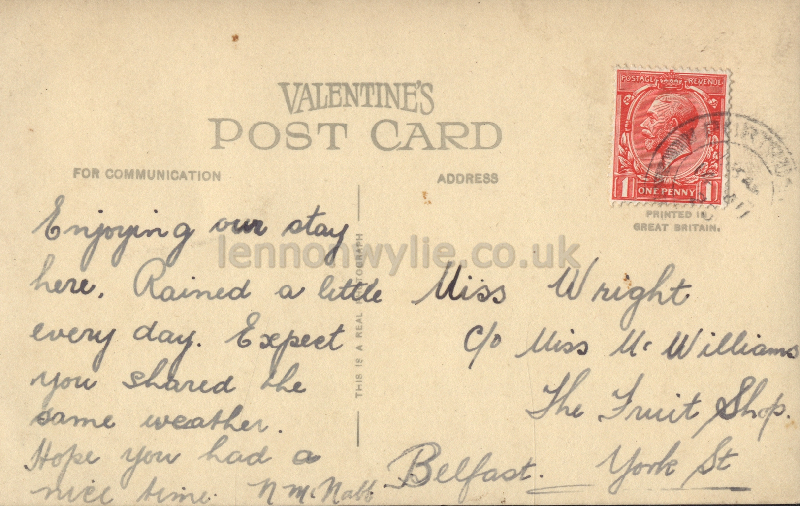 VALENTINE'S
POST CARD
FOR COMMUNICATION
ADDRESS
POSTAGE REVENUE
1 ONE PENNY 1
PRINTED IN
GREAT BRITAIN.
THIS IS A REAL PHOTOGRAPH
lennonwylie.co.uk
Enjoying our stay
here. Rained a little
every day. Expect
you shared the
same weather.
Hope you had a
nice time. N McNabb.
Miss Wright
c/o Miss McWilliams
The Fruit Shop.
York St
Belfast.